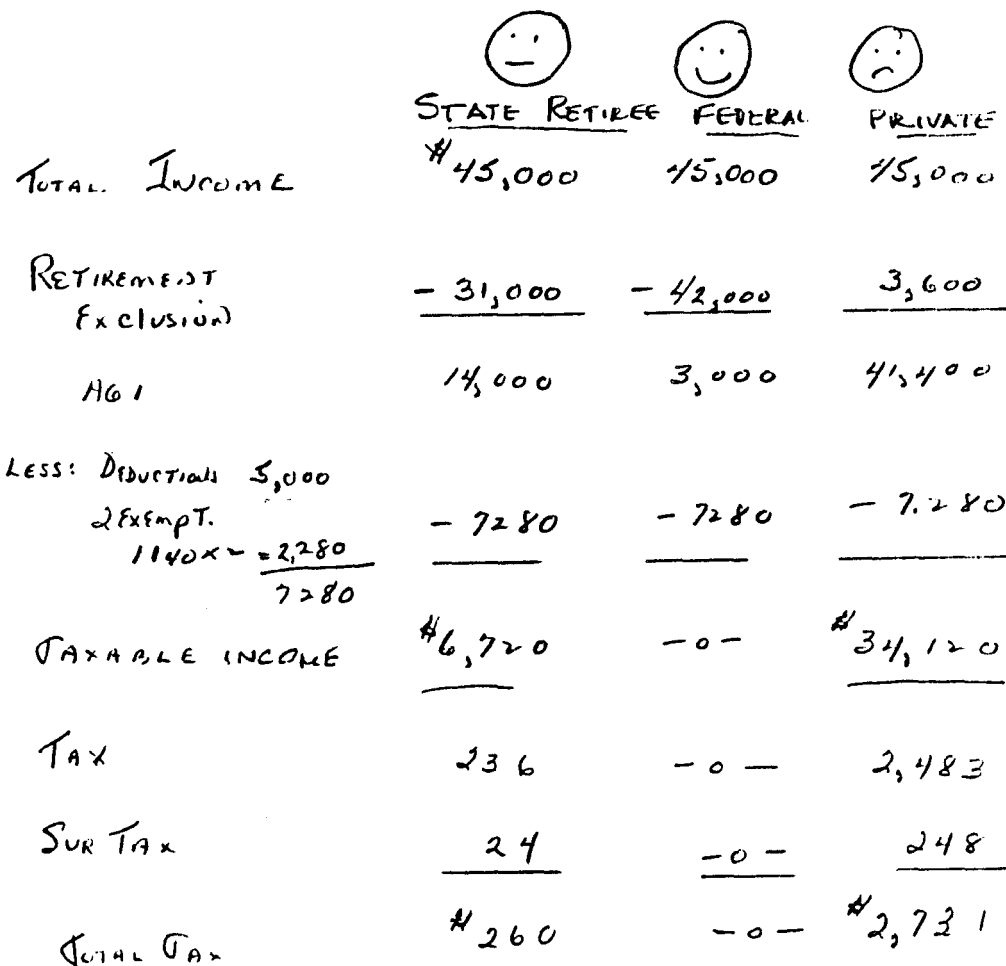 STATE RETIREE FEDERAL PRIVATE
TOTAL INCOME $45,000 45,000 45,000
RETIREMENT
EXclusion - 31,000 - 42,000 3,600
AGI 14,000 3,000 41,400
LESS: DEDUCTIONS 5,000
2 EXEmpT. - 7280 - 7280 - 7.280
1140 x 2 = 2,280
7280
TAXABLE INCOME $6,720 -0- $34,120
TAX 236 -0- 2,483
SUR TAX 24 -0- 248
TOTAL TAX $260 -0- $2,731